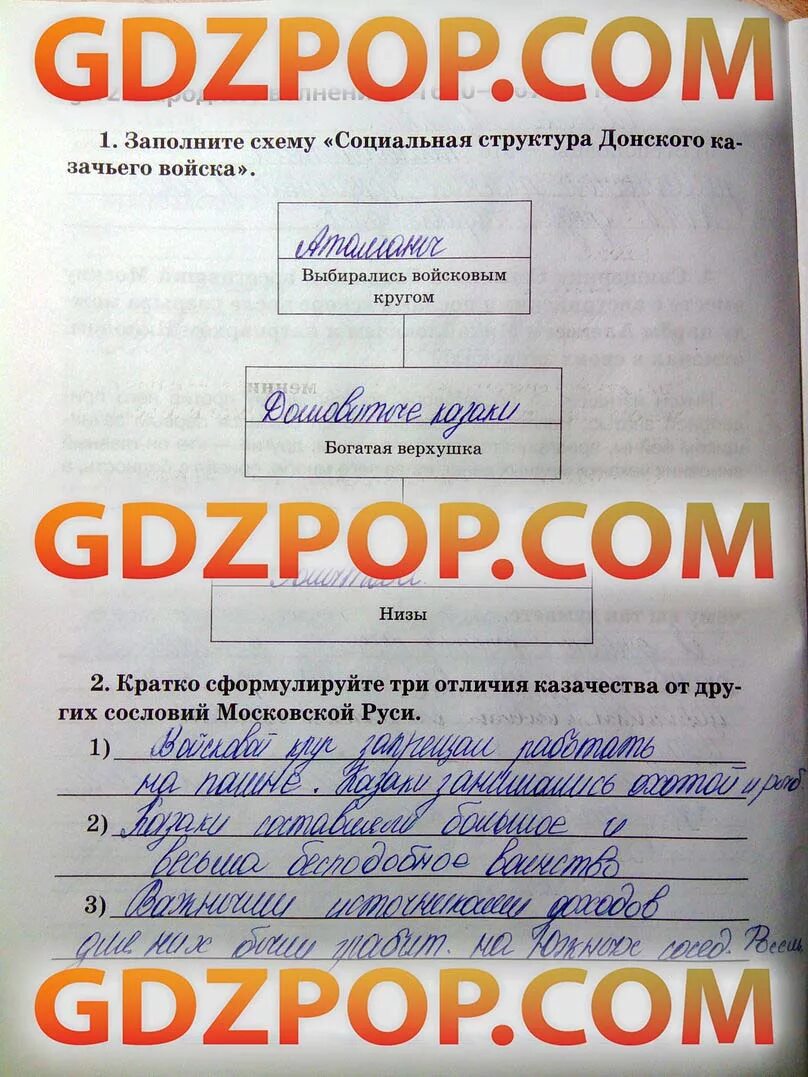 GDZPOP.COM
1. Заполните схему «Социальная структура Донского ка-
зачьего войска».
Атаманы
Выбирались войсковым
кругом
Домовитые казаки
Богатая верхушка
GDZPOP.COM
Низы
2. Кратко сформулируйте три отличия казачества от дру-
гих сословий Московской Руси.
1) Войсковой круг запрещал работать
на пашне. Казаки занимались охотой и рыб.
2) Казаки составляли большое и
весьма бесподобное воинство
3) Важными источниками доходов
для них были грабит. на Южных сосед. России
GDZPOP.COM